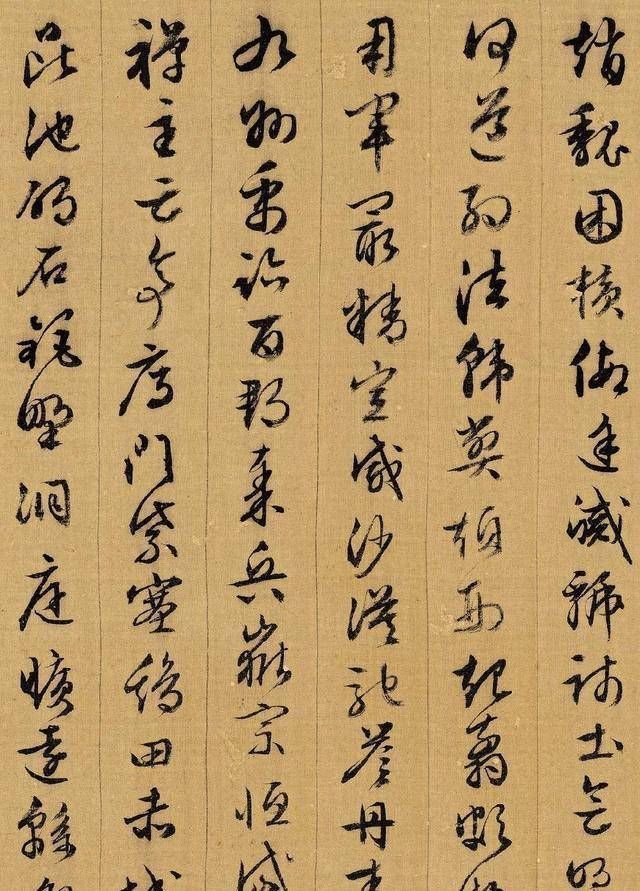 趙魏困橫假途滅虢踐土會盟
何遵約法韓弊煩刑起翦頗
用軍最精宣威沙漠馳譽丹青
九州禹跡百郡秦兵嶽宗恒岱
禪主云亭鴈門紫塞雞田赤城
昆池碣石鉅野洞庭曠遠緜